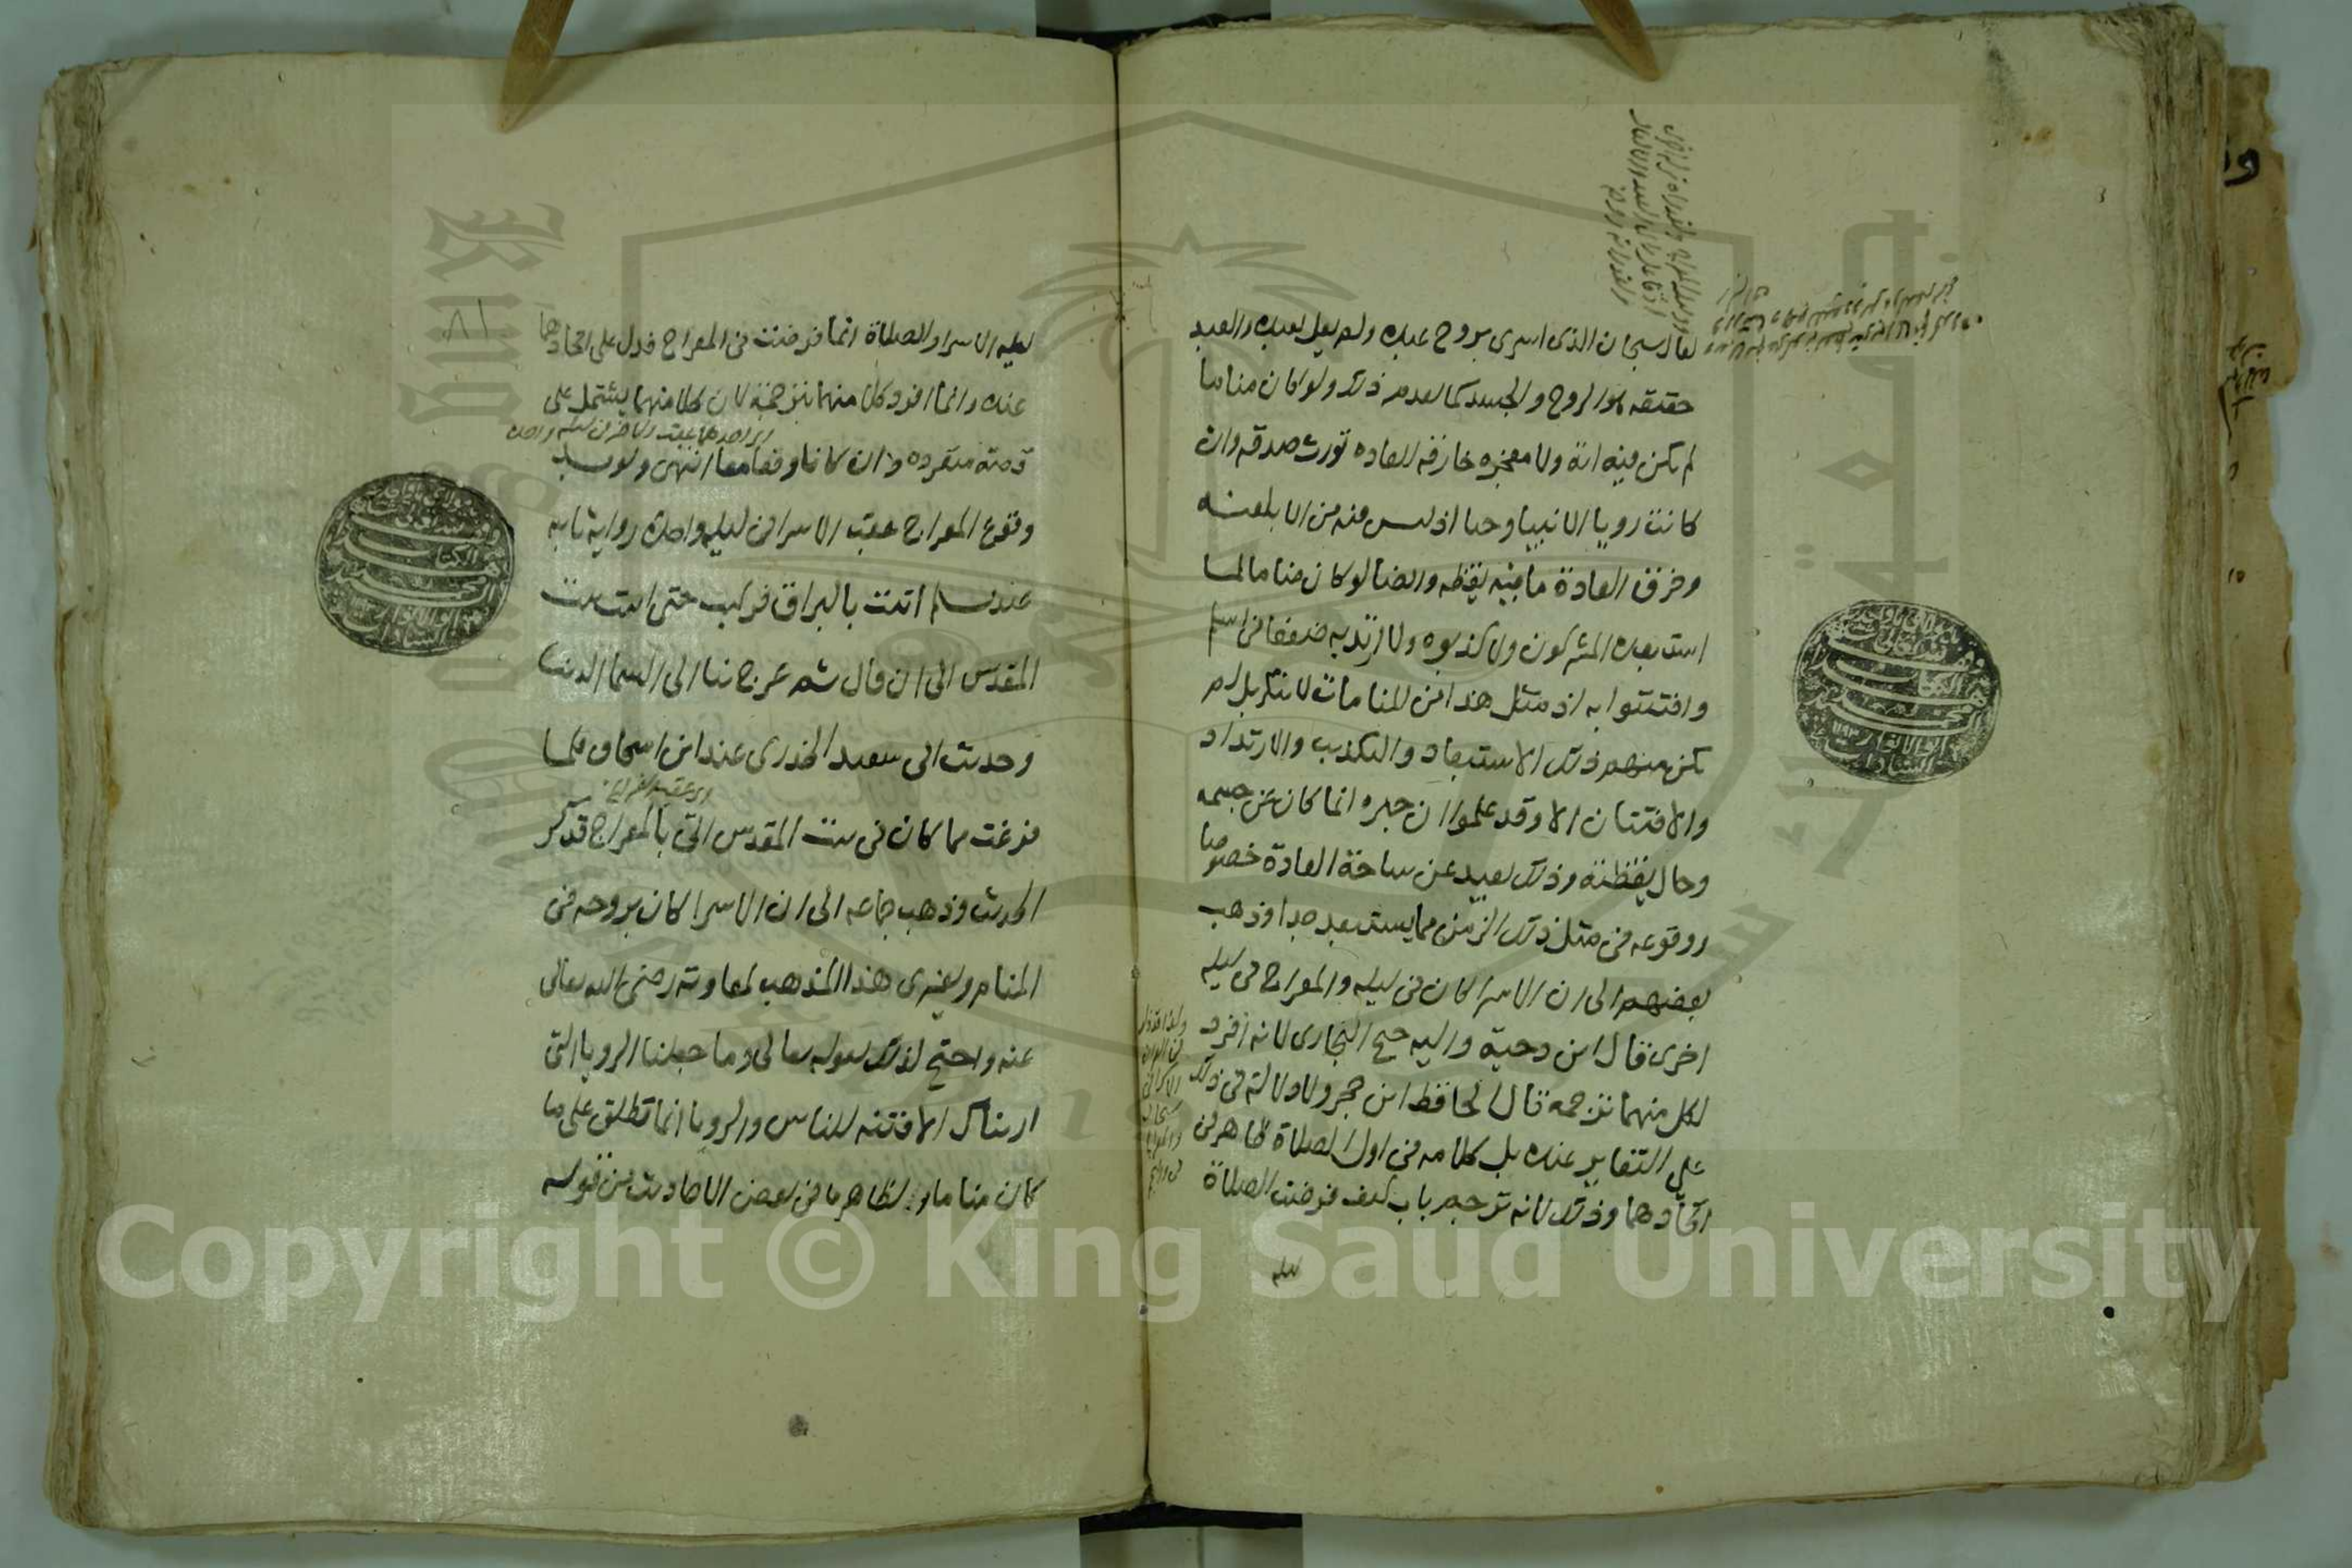 لقال سبحان الذي اسرى بروح عبده ولم يقل بعبده والعبد
حقيقه هو الروح والجسد كما تقدم وذلك ولو كان مناما
لم تكن فيه اية ولا معجزه خارقه للعاده تورث صدقه وان
كانت رويا الانبيا وحيا اذ ليس فيه من الابلغيه
وخرق العادة ما فيه يقظه وايضا لو كان مناما لما
استبعده المشركون ولا كذبوه ولا ارتد به ضعفا من اسلم
وافتتنوا به اذ مثل هذا من المنامات لا ينكر بل لم
يكن منهم ذلك الاستبعاد والتكذيب والارتداد
والافتتان الا وقد علموا ان خبره انما كان عن جسمه
وحال يقظته وذلك بعيد عن ساحة العادة خصوصا
ووقوعه في مثل ذلك الزمن مما يستبعد جدا وذهب
بعضهم الى ان الاسرا كان في ليله والمعراج في ليله
اخرى قال ابن دحية واليه جنح البخاري لانه افرد
لكل منهما ترجمه قال الحافظ ابن حجر ولا دلالة في ذلك
على التغاير عنده بل كلامه في اول الصلاة ظاهر في
اتحادهما وذلك لانه ترجم باب كيف فرضت الصلاة
ليله
ليله الاسرا والصلاة انما فرضت في المعراج فدل على اتحادهما
عنده وانما افرد كلا منهما بترجمة لان كلا منهما يشتمل على
قصة منفرده وان كانا وقعا معا انتهى ويويد
وقوع المعراج عقب الاسرا في ليله واحدة رواية ثابت
عند مسلم اتيت بالبراق فركبت حتى اتيت بيت
المقدس الى ان قال ثم عرج بنا الى السما الدنيا
وحديث ابي سعيد الخدري عند ابن اسحاق فلما
فرغت مما كان في بيت المقدس اتي بالمعراج فذكر
الحديث وذهب جماعه الى ان الاسرا كان بروحه في
المنام ويعزى هذا المذهب لمعاوية رضي الله تعالى
عنه واحتج لذلك بقوله تعالى وما جعلنا الرويا التي
اريناك الا فتنه للناس والرويا انما تطلق على ما
كان مناما وبظاهر ما في بعض الاحاديث من قوله
Copyright © King Saud University